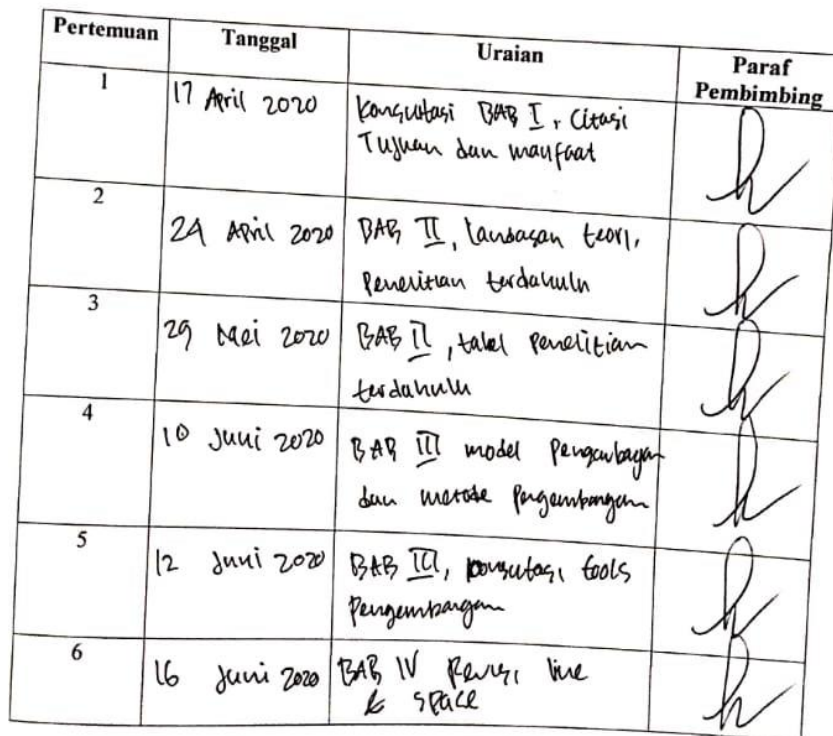 Pertemuan Tanggal Uraian Paraf
Pembimbing
1 17 April 2020 Konsultasi BAB I, Citasi
Tujuan dan manfaat
2
24 April 2020 BAB II, landasan teori,
Penelitian terdahulu
3
29 Mei 2020 BAB II, tabel penelitian
terdahulu
4
10 Juni 2020 BAB III model pengembangan
dan metode pengembangan
5
12 Juni 2020 BAB III, konsultasi tools
Pengembangan
6
16 Juni 2020 BAB IV Revisi line
& space